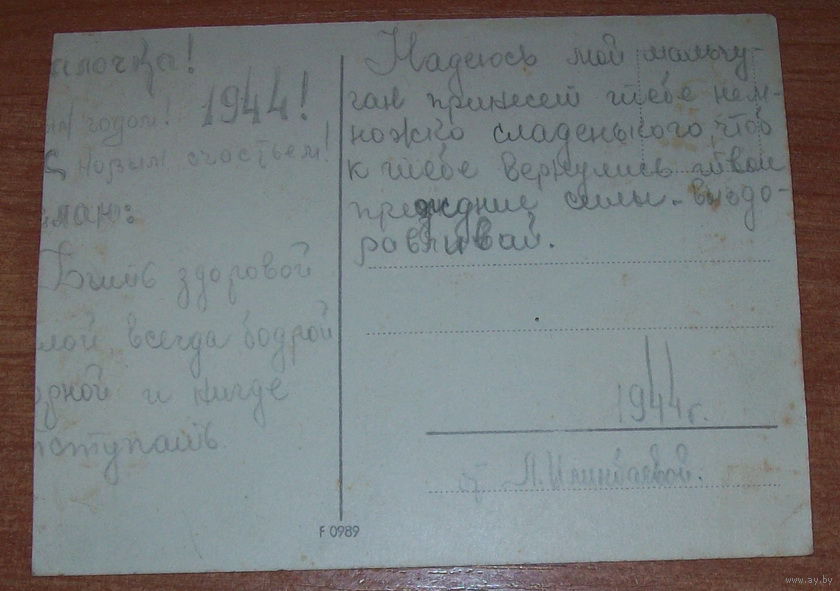 алочка!
ым годом! 1944!
С новым счастьем!
елаю:
Быть здоровой
лой, всегда бодрой
рной и нигде
отступать
Надеюсь мой мальчу-
ган принесет тебе нем-
ножко сладенького, чтоб
к тебе вернулись твои
прежние силы. Выздо-
равливай.
1944 г.
от Л.
F 0989
www.ay.by